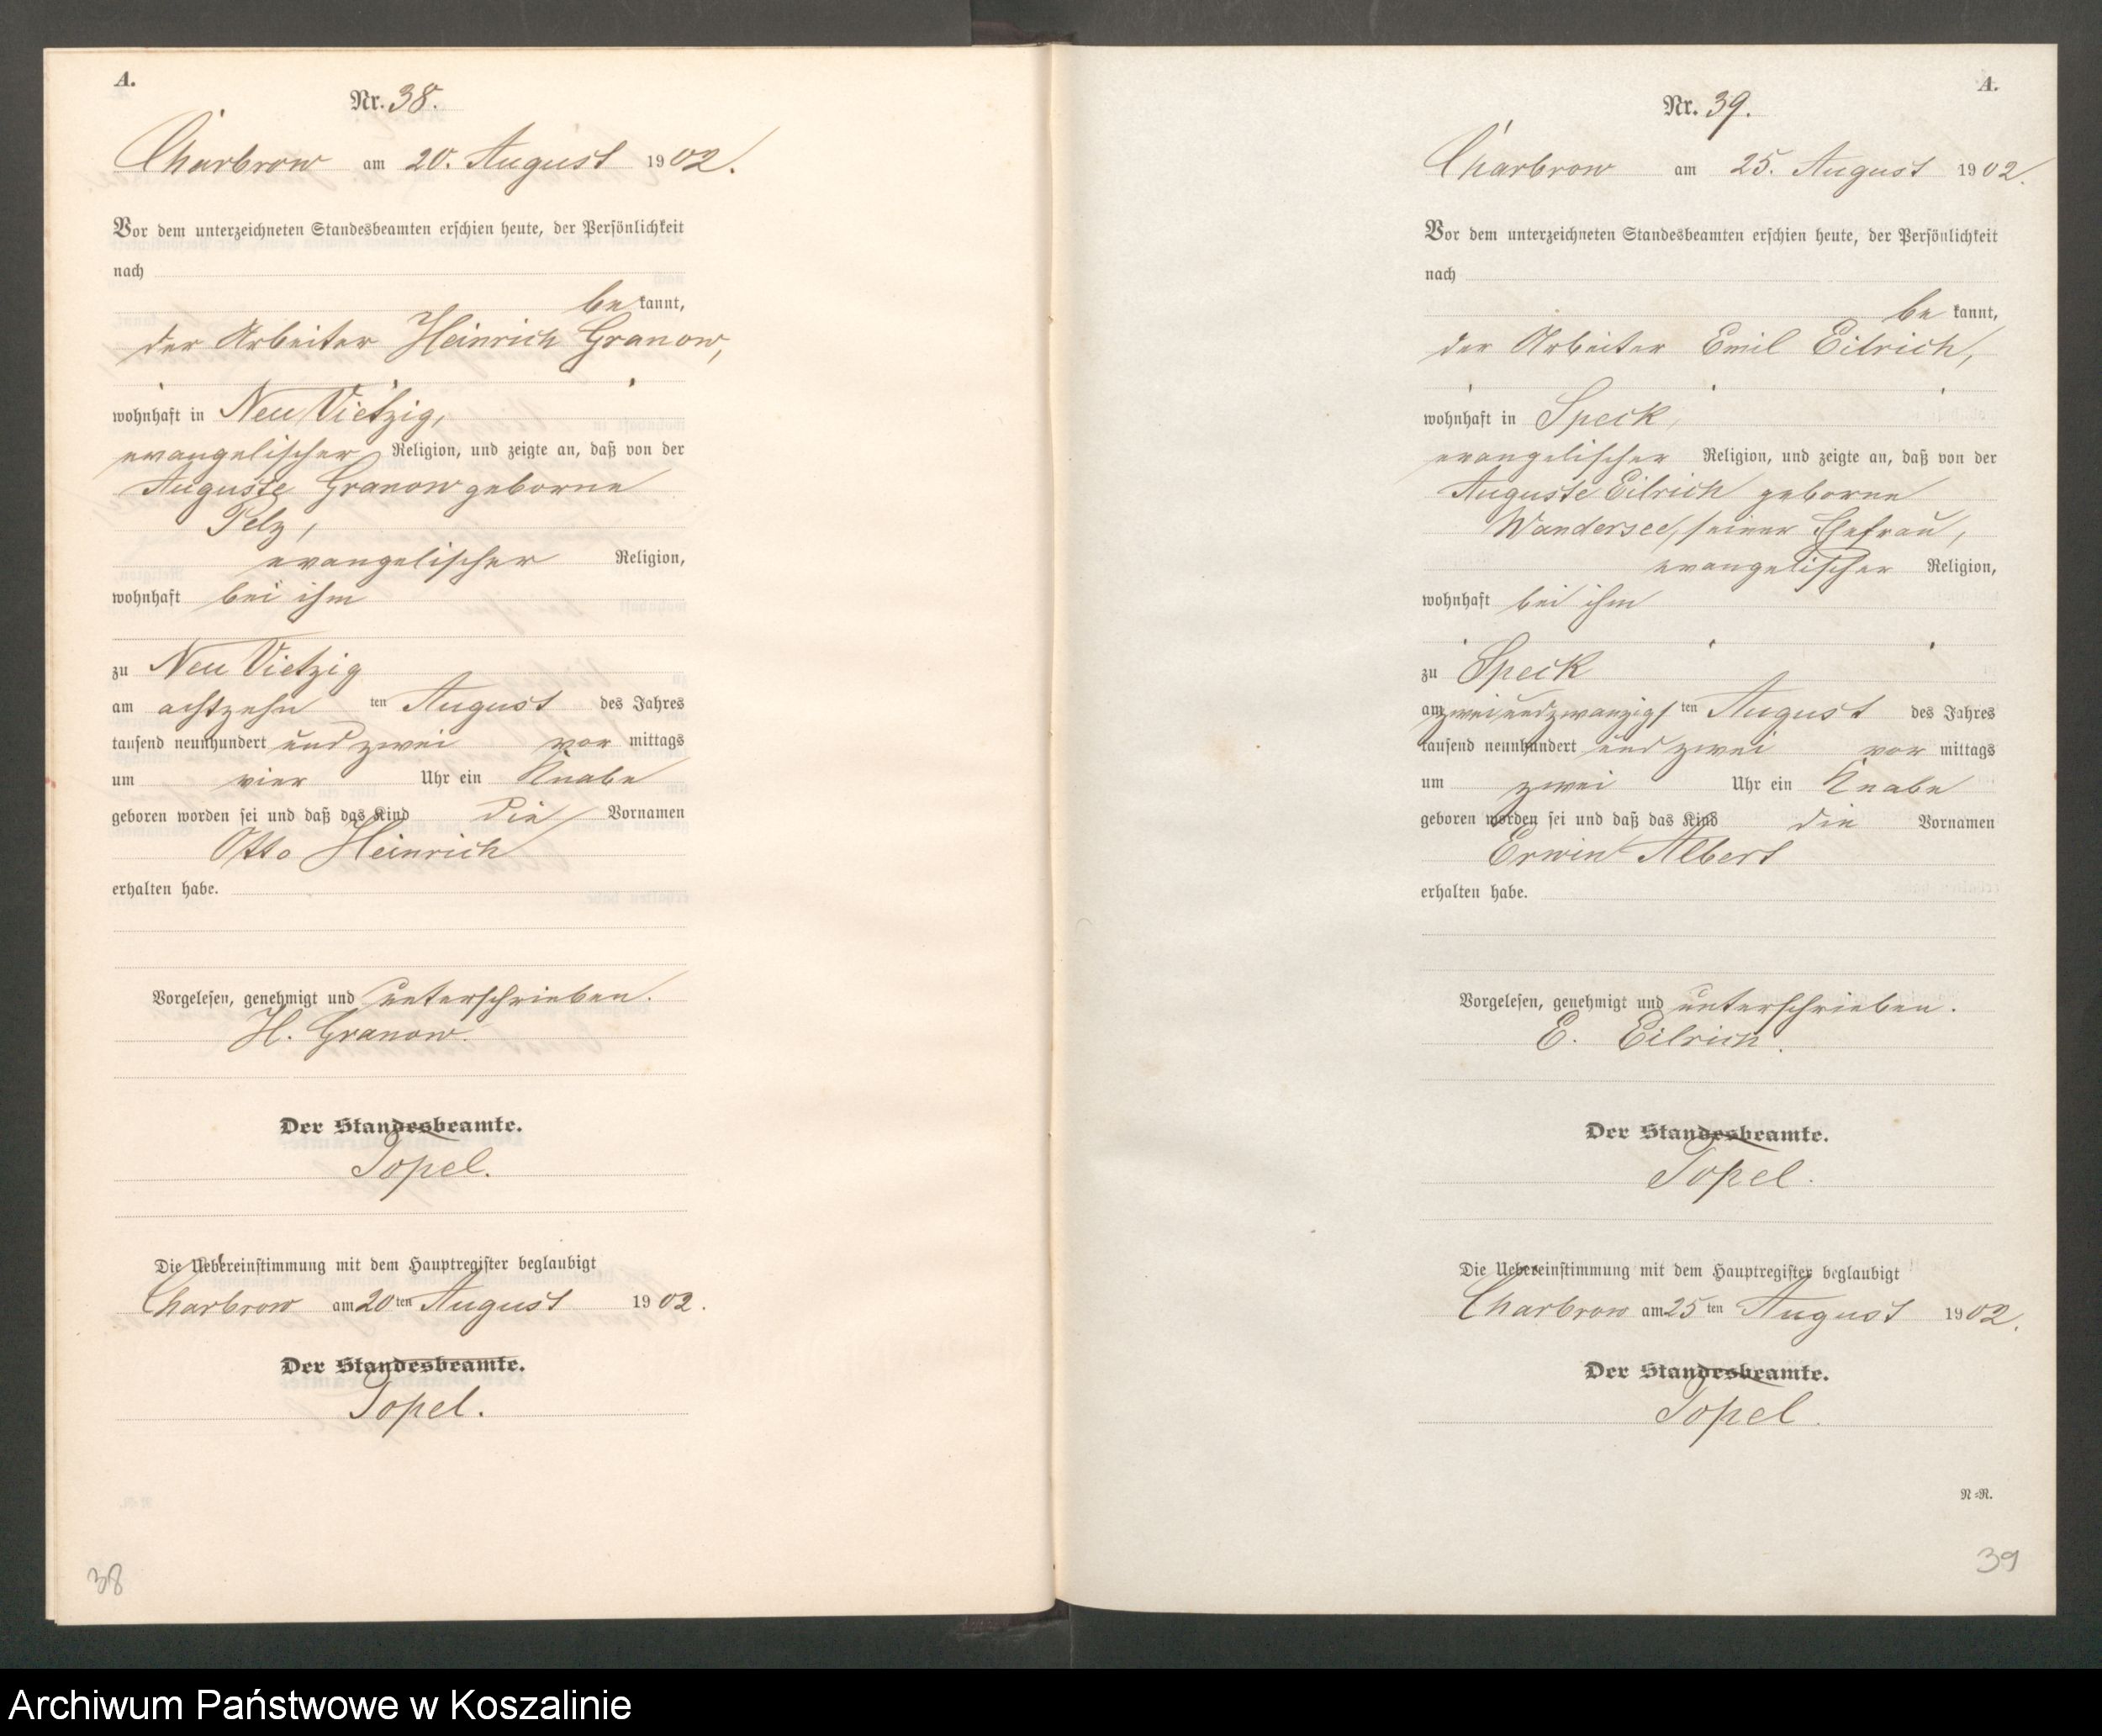 A.
Nr. 38.
Charbrow am 20. August 1902.
Vor dem unterzeichneten Standesbeamten erschien heute, der Persönlichkeit
nach
be kannt,
der Arbeiter Heinrich Granow,
wohnhaft in Neu Vietzig,
evangelischer Religion, und zeigte an, daß von der
Auguste Granow geborne
Pelz,
evangelischer Religion,
wohnhaft bei ihm
zu Neu Vietzig
am achtzehn ten August des Jahres
tausend neunhundert und zwei vor mittags
um vier Uhr ein Knabe
geboren worden sei und daß das Kind die Vornamen
Otto Heinrich
erhalten habe.
Vorgelesen, genehmigt und unterschrieben.
H. Granow.
Der Standesbeamte.
Topel.
Die Uebereinstimmung mit dem Hauptregister beglaubigt
Charbrow am 20 ten August 1902.
Der Standesbeamte.
Topel.
38
A.
Nr. 39.
Charbrow am 25. August 1902.
Vor dem unterzeichneten Standesbeamten erschien heute, der Persönlichkeit
nach
be kannt,
der Arbeiter Emil Eilrich,
wohnhaft in Speck,
evangelischer Religion, und zeigte an, daß von der
Auguste Eilrich geborne
Wandersee, seiner Ehefrau,
evangelischer Religion,
wohnhaft bei ihm
zu Speck
am zweiundzwanzigs ten August des Jahres
tausend neunhundert und zwei vor mittags
um zwei Uhr ein Knabe
geboren worden sei und daß das Kind die Vornamen
Erwin Albert
erhalten habe.
Vorgelesen, genehmigt und unterschrieben.
E. Eilrich.
Der Standesbeamte.
Topel.
Die Uebereinstimmung mit dem Hauptregister beglaubigt
Charbrow am 25 ten August 1902.
Der Standesbeamte.
Topel.
N=R.
39
Archiwum Państwowe w Koszalinie